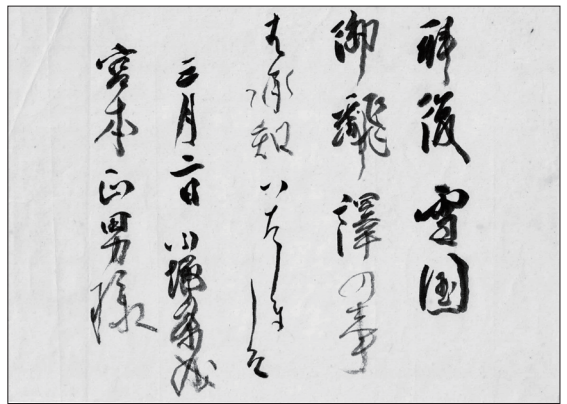 拝復 雪国
御飜譯の事
右承知いたしました
五月二日 川端康成
宮本正男様